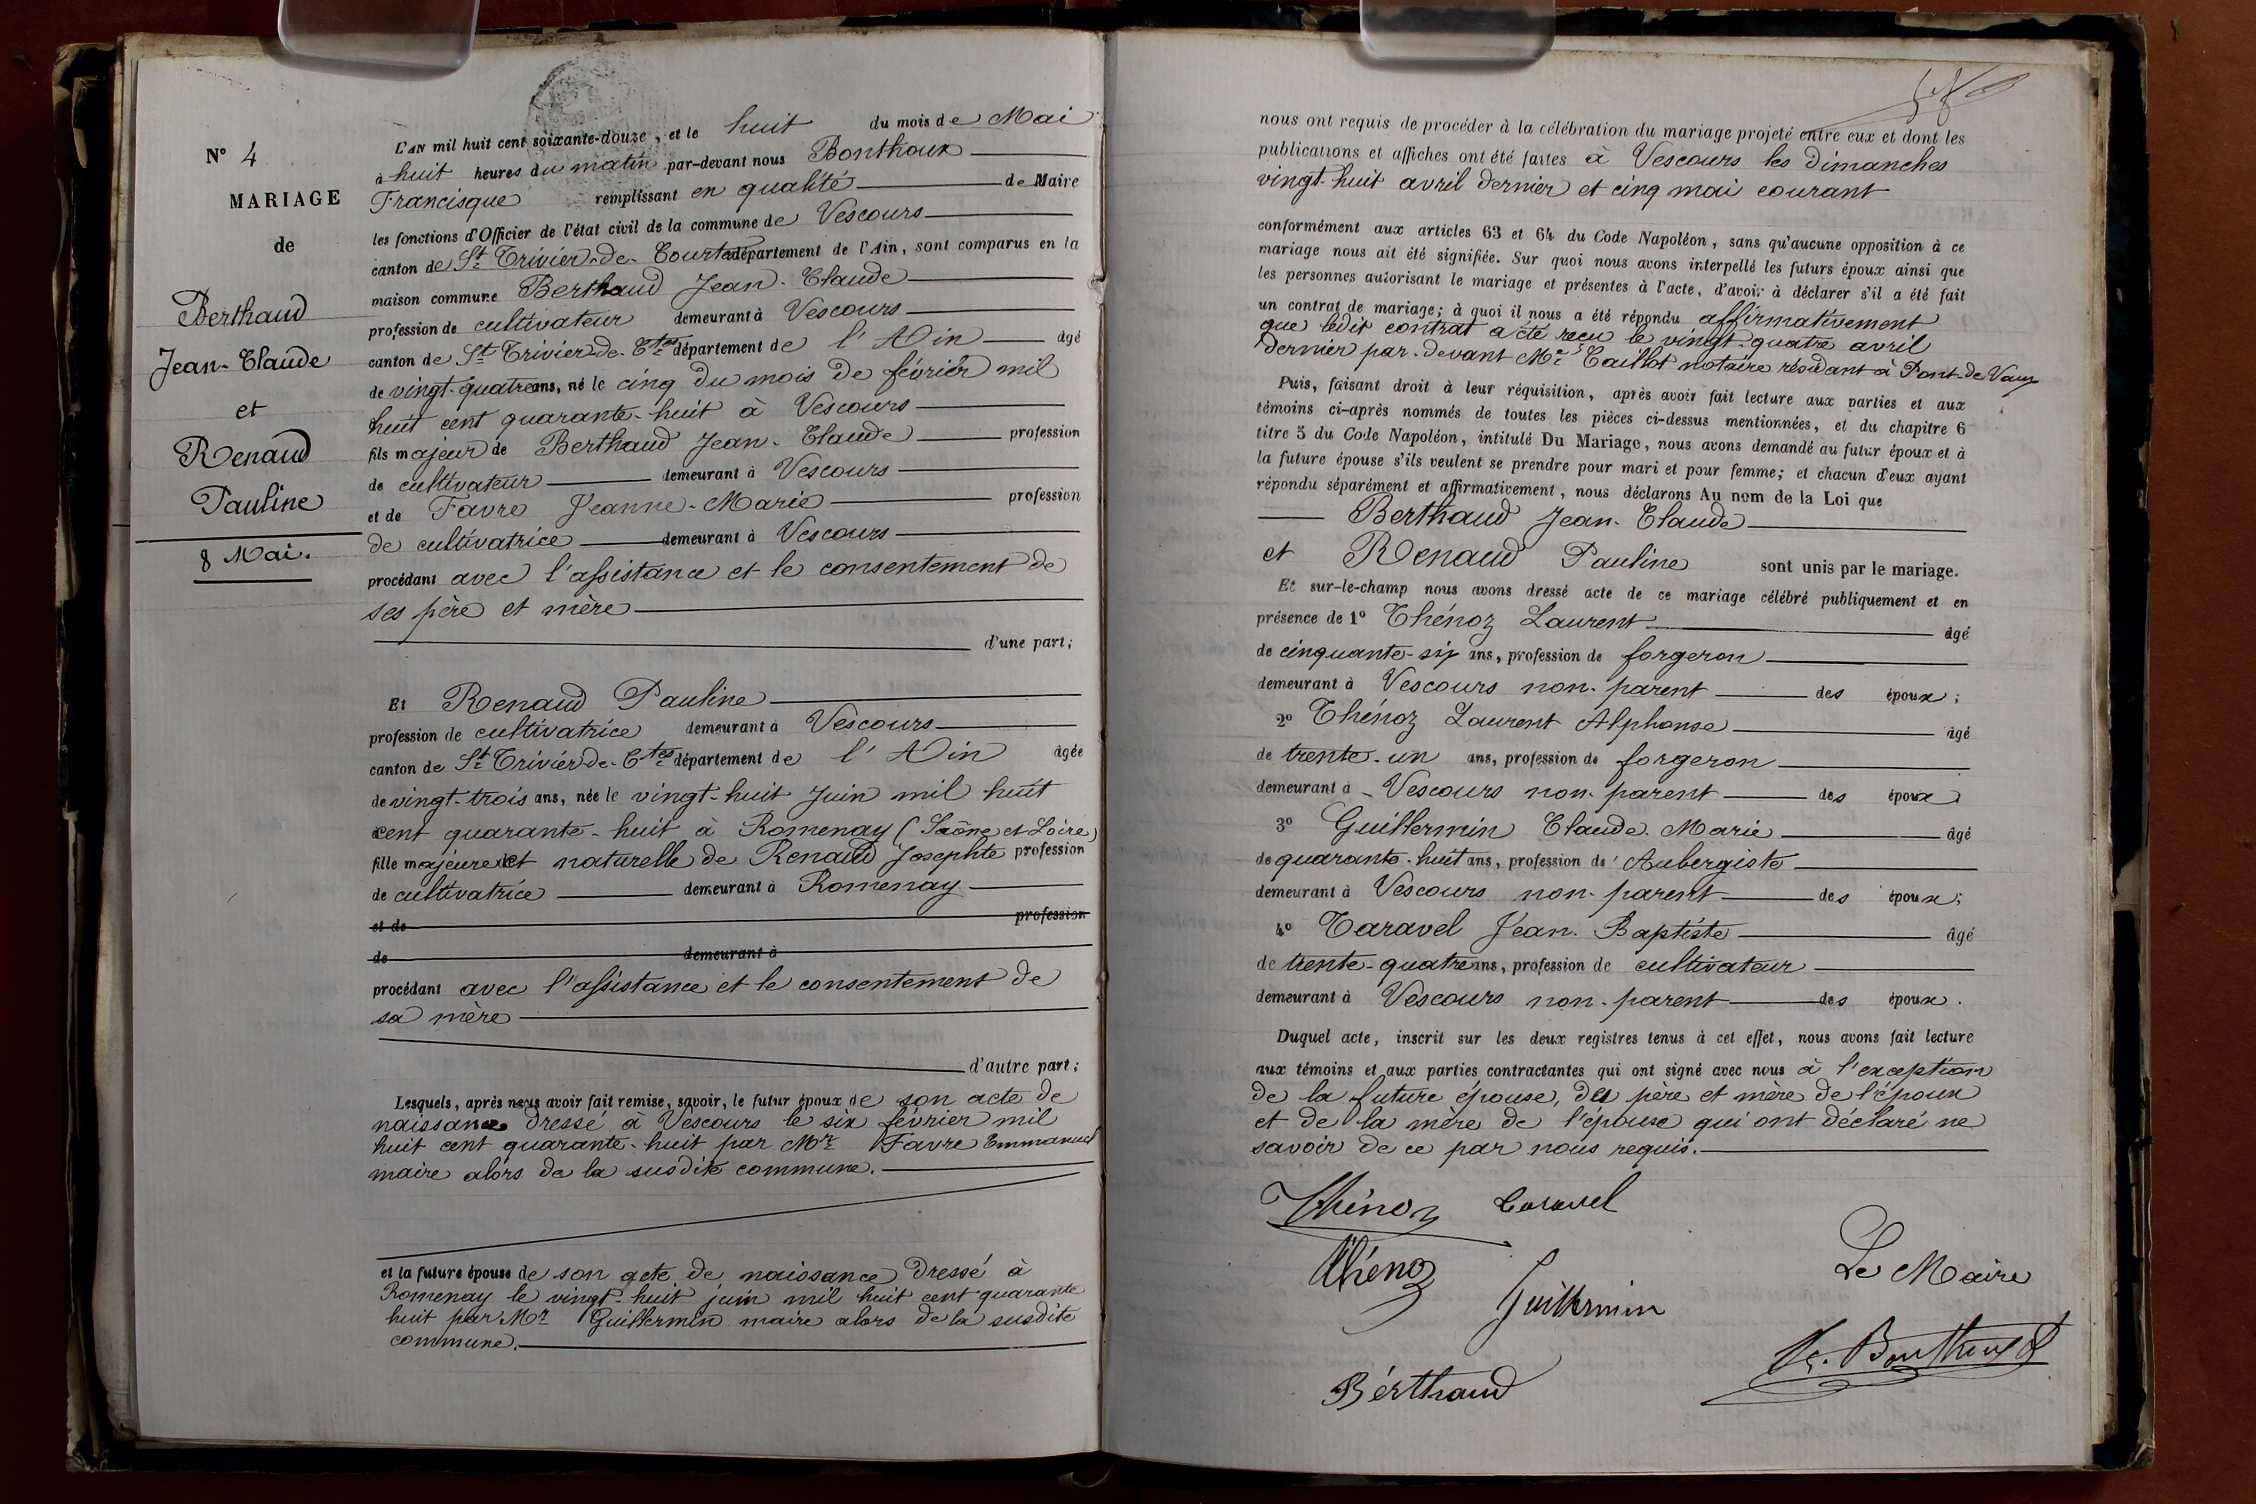 N° 4
MARIAGE
de
Berthaud
Jean-Claude
et
Renaud
Pauline
8 Mai.
L'AN mil huit cent soixante-douze, et le huit du mois de Mai
à huit heures du matin par-devant nous Bonthoux
Francisque remplissant en qualité de Maire
les fonctions d'Officier de l'état civil de la commune de Vescours
canton de St Trivier-de-Courtes département de l'Ain, sont comparus en la
maison commune Berthaud Jean-Claude
profession de cultivateur demeurant à Vescours
canton de St Trivier-de-Ctes département de l'Ain âgé
de vingt-quatre ans, né le cinq du mois de février mil
huit cent quarante-huit à Vescours
fils majeur de Berthaud Jean-Claude profession
de cultivateur demeurant à Vescours
et de Favre Jeanne-Marie profession
de cultivatrice demeurant à Vescours
procédant avec l'assistance et le consentement de
ses père et mère
d'une part;
Et Renaud Pauline
profession de cultivatrice demeurant à Vescours
canton de St Trivier-de-Ctes département de l'Ain âgée
de vingt-trois ans, née le vingt-huit Juin mil huit
cent quarante-huit à Romenay (Saône et Loire)
fille majeure et naturelle de Renaud Josephte profession
de cultivatrice demeurant à Romenay
et de profession
de demeurant à
procédant avec l'assistance et le consentement de
sa mère
d'autre part;
Lesquels, après nous avoir fait remise, savoir, le futur époux de son acte de
naissance dressé à Vescours le six février mil
huit cent quarante-huit par Mr Favre Emmanuel
maire alors de la susdite commune.
et la future épouse de son acte de naissance dressé à
Romenay le vingt-huit juin mil huit cent quarante
huit par Mr Guillermin maire alors de la susdite
commune.
nous ont requis de procéder à la célébration du mariage projeté entre eux et dont les
publications et affiches ont été faites à Vescours les dimanches
vingt-huit avril dernier et cinq mai courant
conformément aux articles 63 et 64 du Code Napoléon, sans qu'aucune opposition à ce
mariage nous ait été signifiée. Sur quoi nous avons interpellé les futurs époux ainsi que
les personnes autorisant le mariage et présentes à l'acte, d'avoir à déclarer s'il a été fait
un contrat de mariage; à quoi il nous a été répondu affirmativement
que ledit contrat a été reçu le vingt-quatre avril
dernier par-devant Me Caillot notaire résidant à Pont-de-Vaux
Puis, faisant droit à leur réquisition, après avoir fait lecture aux parties et aux
témoins ci-après nommés de toutes les pièces ci-dessus mentionnées, et du chapitre 6
titre 5 du Code Napoléon, intitulé Du Mariage, nous avons demandé au futur époux et à
la future épouse s'ils veulent se prendre pour mari et pour femme; et chacun d'eux ayant
répondu séparément et affirmativement, nous déclarons Au nom de la Loi que
Berthaud Jean-Claude
et Renaud Pauline sont unis par le mariage.
Et sur-le-champ nous avons dressé acte de ce mariage célébré publiquement et en
présence de 1° Thénoz Laurent âgé
de cinquante-six ans, profession de forgeron
demeurant à Vescours non-parent des époux;
2° Thénoz Laurent Alphonse âgé
de trente-un ans, profession de forgeron
demeurant à Vescours non-parent des époux
3° Guillermin Claude-Marie âgé
de quarante-huit ans, profession de Aubergiste
demeurant à Vescours non-parent des époux;
4° Taravel Jean-Baptiste âgé
de trente-quatre ans, profession de cultivateur
demeurant à Vescours non-parent des époux.
Duquel acte, inscrit sur les deux registres tenus à cet effet, nous avons fait lecture
aux témoins et aux parties contractantes qui ont signé avec nous à l'exception
de la future épouse, du père et mère de l'époux
et de la mère de l'épouse qui ont déclaré ne
savoir de ce par nous requis.
Thénoz Taravel
Thénoz
Guillermin
Le Maire
Berthaud
Fc. Bonthoux